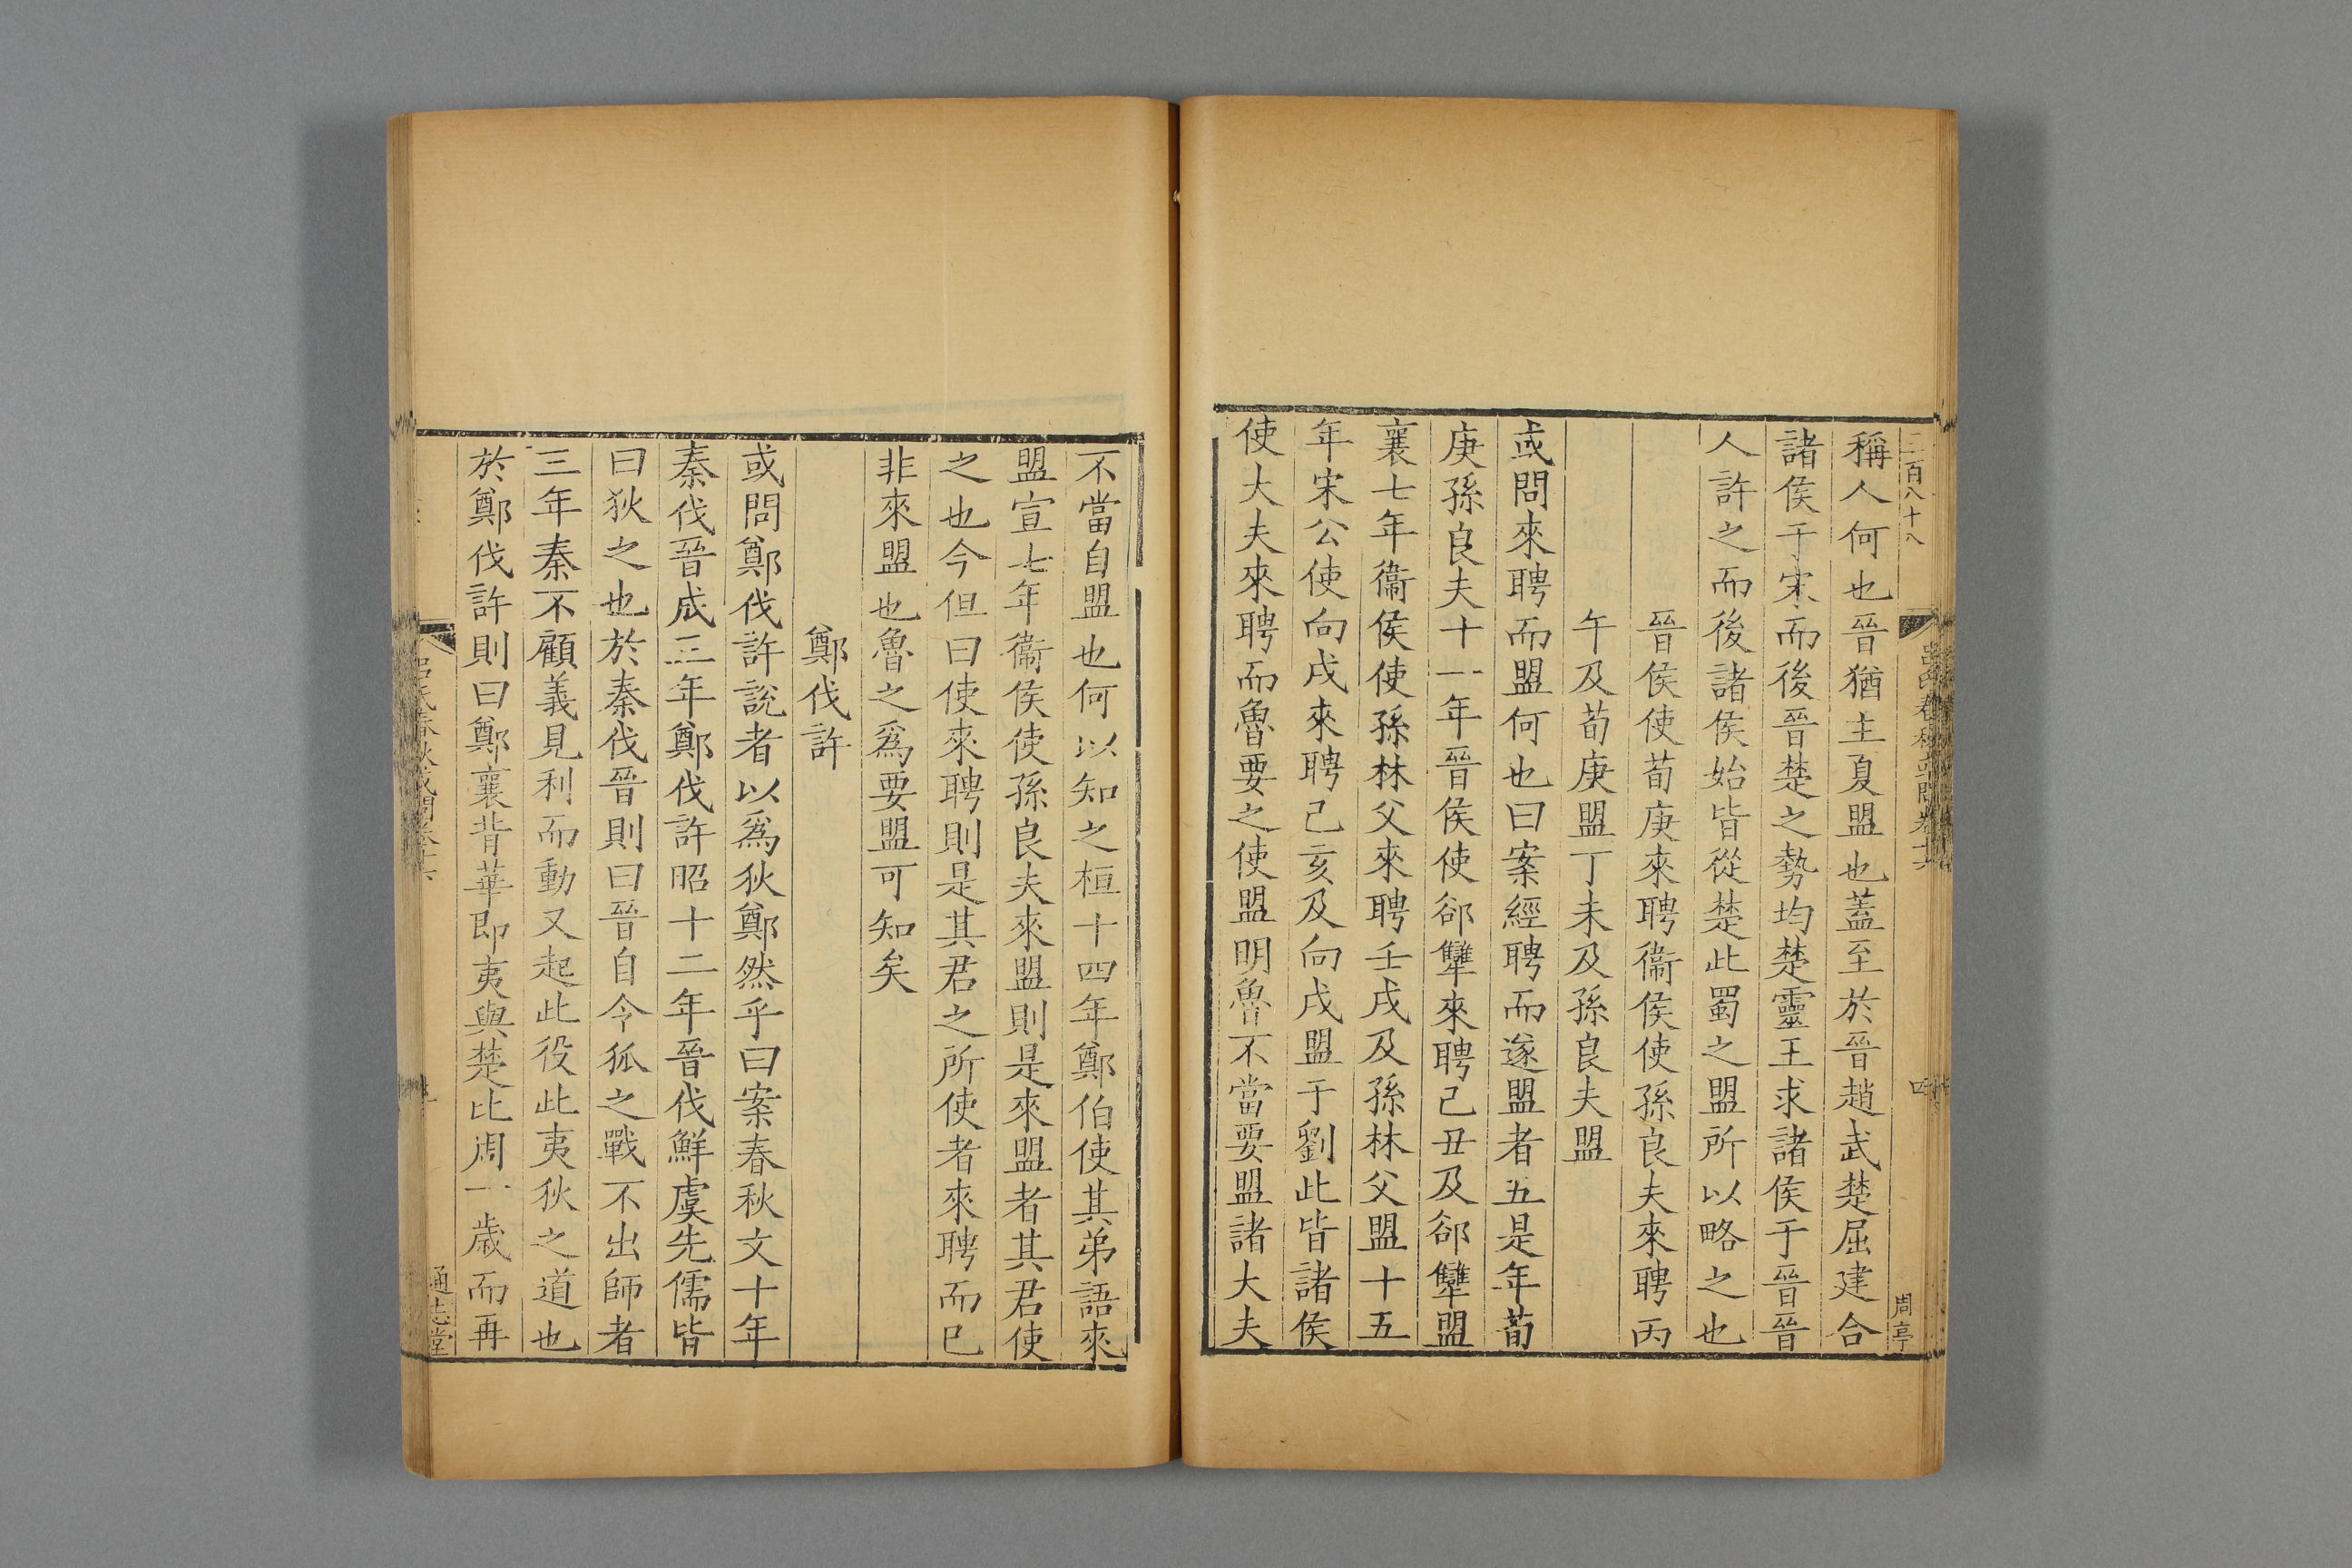 二百八十八
周亭
稱人何也晉猶主夏盟也蓋至於晉趙武楚屈建合
諸侯于宋而後晉楚之勢均楚靈王求諸侯于晉晉
人許之而後諸侯始皆從楚此蜀之盟所以略之也
晉侯使荀庚來聘衞侯使孫良夫來聘丙
午及荀庚盟丁未及孫良夫盟
或問來聘而盟何也曰案經聘而遂盟者五是年荀
庚孫良夫十一年晉侯使郤犫來聘己丑及郤犫盟
襄七年衞侯使孫林父來聘壬戌及孫林父盟十五
年宋公使向戌來聘己亥及向戌盟于劉此皆諸侯
使大夫來聘而魯要之使盟明魯不當要盟諸大夫
不當自盟也何以知之桓十四年鄭伯使其弟語來
盟宣七年衞侯使孫良夫來盟則是來盟者其君使
之也今但曰使來聘則是其君之所使者來聘而已
非來盟也魯之爲要盟可知矣
鄭伐許
或問鄭伐許說者以爲狄鄭然乎曰案春秋文十年
秦伐晉成三年鄭伐許昭十二年晉伐鮮虞先儒皆
曰狄之也於秦伐晉則曰晉自令狐之戰不出師者
三年秦不顧義見利而動又起此役此夷狄之道也
於鄭伐許則曰鄭襄背華即夷與楚比周一歲而再
呂氏春秋或問卷十六
通志堂